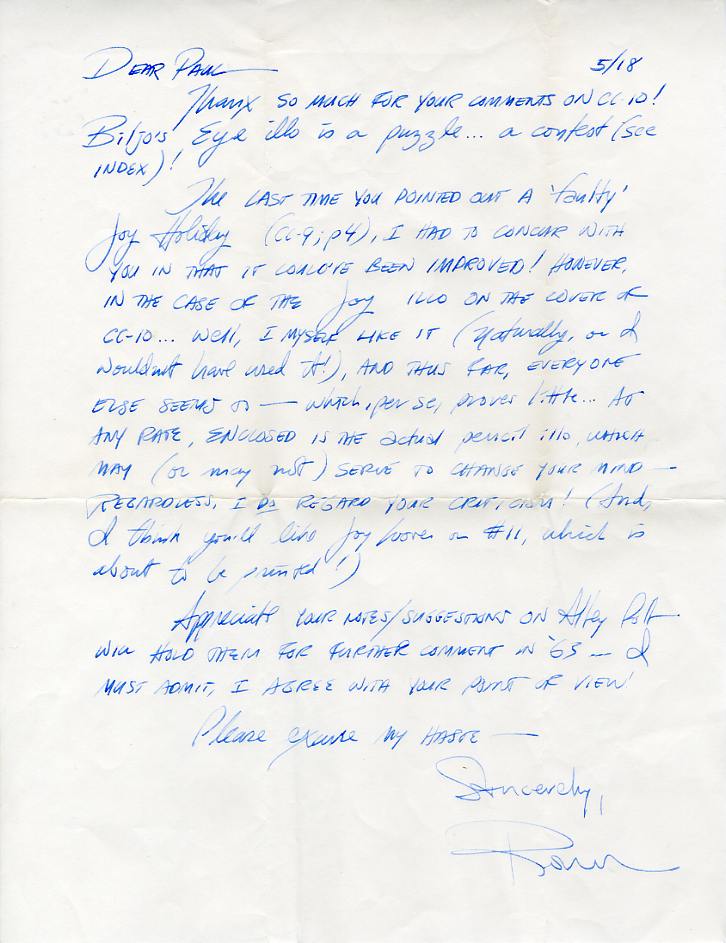 DEAR PAUL — 5/18
Thanx SO MUCH FOR YOUR COMMENTS ON CC-10!
Biljo's Eye illo is a puzzle... a contest (see
INDEX)!
The LAST TIME YOU POINTED OUT A 'faulty'
Joy Holiday (CC-9; p4), I HAD TO CONCUR WITH
YOU IN THAT IT COULD'VE BEEN IMPROVED! HOWEVER,
IN THE CASE OF THE Joy ILLO ON THE COVER OF
CC-10... Well, I MYSELF LIKE IT (Naturally, or I
wouldn't have used it!), AND THUS FAR, EVERYONE
ELSE SEEMS TO — which, per se, proves little... AT
ANY RATE, ENCLOSED IS THE actual pencil illo, WHICH
MAY (or may not) SERVE TO CHANGE YOUR MIND —
REGARDLESS, I DO REGARD YOUR CRITICISM! (And,
I think you'll like Joy cover on #11, which is
about to be printed!)
Appreciate YOUR NOTES/SUGGESTIONS ON Alley Poll
WILL HOLD THEM FOR FURTHER COMMENT IN '63 — I
MUST ADMIT, I AGREE WITH YOUR POINT OF VIEW!
Please excuse MY HASTE —
Sincerely,